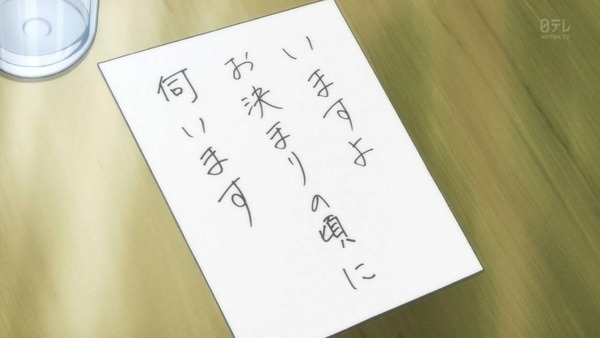 いますよ
お決まりの頃に
伺います
日テレ
NIPPON TV